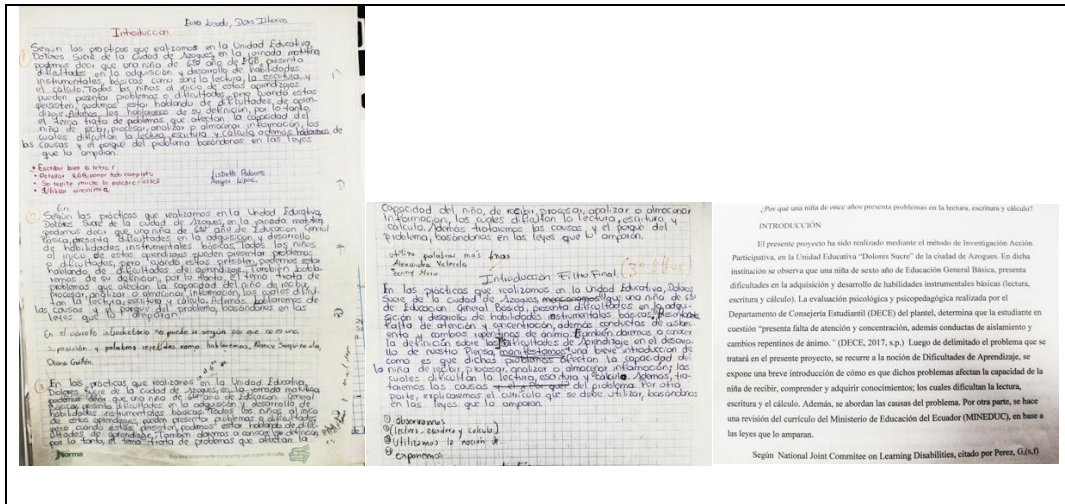 Introducción
Según las prácticas que realizamos en la Unidad Educativa,
Dolores Sucre de la ciudad de Azogues, en la jornada matutina,
podemos decir que una niña de 6to año de EGB, presenta
dificultades en la adquisición y desarrollo de habilidades
instrumentales, básicas como son: la lectura, la escritura y
el cálculo. Todos los niños al inicio de estos aprendizajes
pueden presentar problemas o dificultades, pero cuando estas
persisten, podemos estar hablando de dificultades, de apren-
dizaje. Además les hablaremos de su definición, por lo tanto,
el tema trata de problemas que afectan la capacidad del
niño de recibir, procesar, analizar o almacenar información, los
cuales dificultan la lectura, escritura y cálculo además hablamos de
las causas y el porque del problema basándonos en las leyes
que lo amparan.
• Escribir bien la letra r
• Detallar EGB, poner todo completo
• Se repite mucho la palabra
• Utilizar sinonimia.
En
Según las prácticas que realizamos en la Unidad Educativa,
Dolores Sucre de la ciudad de Azogues, en la jornada matutina
podemos decir que una niña de 6to año de Educación General
Básica, presenta dificultades en la adquisición y desarrollo
de habilidades, instrumentales básicas. Todos los niños
al inicio de estos aprendizajes pueden presentar problemas
o dificultades, pero cuando estas persisten, podemos estar
hablando de dificultades de aprendizaje. También habla-
remos de su definición, por lo tanto, el tema trata de
problemas que afectan la capacidad del niño de recibir,
procesar, analizar o almacenar información, los cuales dificul-
tan la lectura, escritura y cálculo. Además hablaremos de
las causas y el porque del problema, basándonos en las
leyes que lo amparan.
En el párrafo introductorio no puede ir según por que no es una
suposición y palabras repetidas como hablaremos, Nancy
Diana Guillén
En las prácticas que realizamos en la Unidad Educativa,
Dolores Sucre de la ciudad de Azogues, en la jornada matutina
que una niña de 6to año de Educación General
Básica, presenta dificultades en la adquisición y desarrollo de
habilidades instrumentales básicas. Todos los niños al inicio
de estos aprendizajes, pueden presentar problemas o dificultades
pero cuando estas persisten, podemos estar hablando de difi-
cultades de aprendizaje. También daremos a conocer la definición,
por lo tanto, el tema trata de problemas que afectan la
Norma
capacidad del niño, de recibir, procesar, analizar o almacenar
información, los cuales dificultan la lectura, escritura y
cálculo. Además trataremos las causas y el porque del
problema, basándonos en las leyes que lo amparan.
Utilizo palabras más finas
Introducción Filtro Final.
En las prácticas que realizamos en la Unidad Educativa, Dolores
Sucre de la ciudad de Azogues, que una niña de 6to
de Educación General Básica, presenta dificultades en la adqui-
sición y desarrollo de habilidades instrumentales básicas. Presenta
falta de atención y concentración, además conductas de aisla-
miento y cambios repentinos de ánimo. También daremos a conocer
la definición sobre las Dificultades de Aprendizaje en el desarro-
llo de nuestro Pienso, manifestamos una breve introducción de
como es que dichos problemas afectan la capacidad de
la niña de recibir, procesar, analizar o almacenar información; los
cuales dificultan la lectura, escritura y cálculo. Además, tra-
taremos las causas del problema. Por otra
parte, explicaremos el currículo que se debe utilizar, basándonos
en las leyes que lo amparan.
① observamos
② (lectura, escritura y cálculo)
③ Utilizamos la noción de...
④ exponemos
¿Por qué una niña de once años presenta problemas en la lectura, escritura y cálculo?
INTRODUCCIÓN
El presente proyecto ha sido realizado mediante el método de Investigación Acción
Participativa, en la Unidad Educativa “Dolores Sucre” de la ciudad de Azogues. En dicha
institución se observa que una niña de sexto año de Educación General Básica, presenta
dificultades en la adquisición y desarrollo de habilidades instrumentales básicas (lectura,
escritura y cálculo). La evaluación psicológica y psicopedagógica realizada por el
Departamento de Consejería Estudiantil (DECE) del plantel, determina que la estudiante en
cuestión “presenta falta de atención y concentración, además conductas de aislamiento y
cambios repentinos de ánimo. “ (DECE, 2017, s.p.) Luego de delimitado el problema que se
tratará en el presente proyecto, se recurre a la noción de Dificultades de Aprendizaje, se
expone una breve introducción de cómo es que dichos problemas afectan la capacidad de la
niña de recibir, comprender y adquirir conocimientos; los cuales dificultan la lectura,
escritura y el cálculo. Además, se abordan las causas del problema. Por otra parte, se hace
una revisión del currículo del Ministerio de Educación del Ecuador (MINEDUC), en base a
las leyes que lo amparan.
Según National Joint Commitee on Learning Disabilities, citado por Perez, G,(s,f)